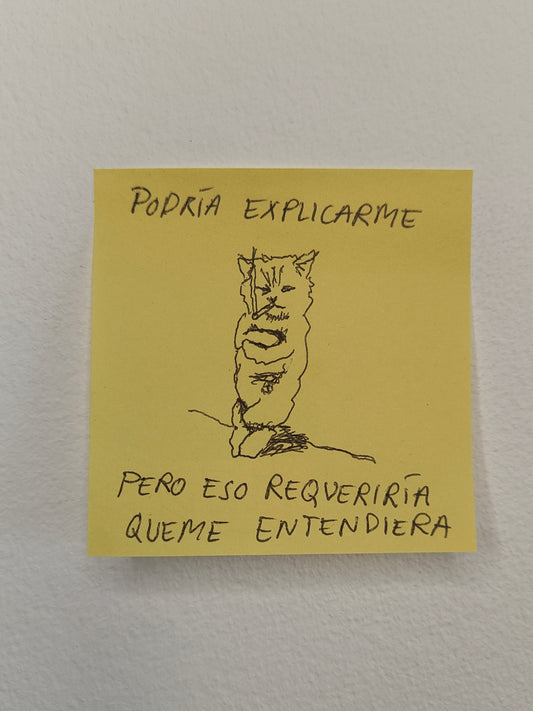 PODRÍA EXPLICARME
PERO ESO REQUERIRÍA
QUEME ENTENDIERA